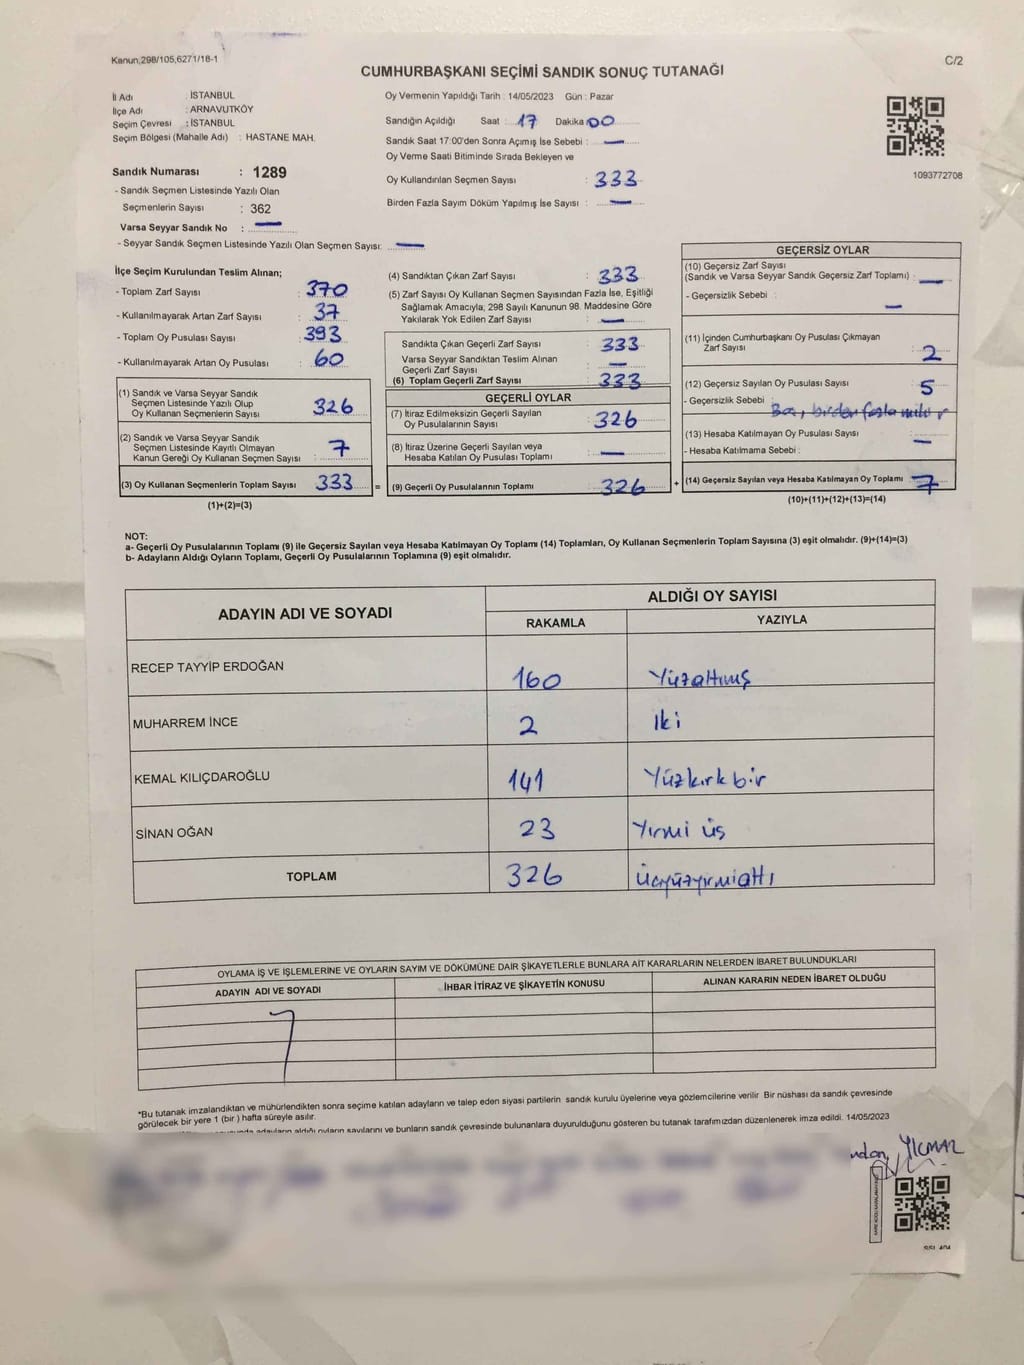 Kanun;298/105,6271/18-1
C/2
CUMHURBAŞKANI SEÇİMİ SANDIK SONUÇ TUTANAĞI
İl Adı : İSTANBUL
İlçe Adı : ARNAVUTKÖY
Seçim Çevresi : İSTANBUL
Seçim Bölgesi (Mahalle Adı) : HASTANE MAH.
Oy Vermenin Yapıldığı Tarih : 14/05/2023 Gün : Pazar
Sandığın Açıldığı Saat : 17 Dakika : 00
Sandık Saat 17:00'den Sonra Açımış İse Sebebi : —
Oy Verme Saati Bitiminde Sırada Bekleyen ve
Oy Kullandırılan Seçmen Sayısı : 333
Birden Fazla Sayım Döküm Yapılmış İse Sayısı : —
1093772708
Sandık Numarası : 1289
- Sandık Seçmen Listesinde Yazılı Olan
Seçmenlerin Sayısı : 362
Varsa Seyyar Sandık No : —
- Seyyar Sandık Seçmen Listesinde Yazılı Olan Seçmen Sayısı: —
İlçe Seçim Kurulundan Teslim Alınan;
- Toplam Zarf Sayısı : 370
- Kullanılmayarak Artan Zarf Sayısı : 37
- Toplam Oy Pusulası Sayısı : 393
- Kullanılmayarak Artan Oy Pusulası : 60
(1) Sandık ve Varsa Seyyar Sandık
Seçmen Listesinde Yazılı Olup
Oy Kullanan Seçmenlerin Sayısı : 326
(2) Sandık ve Varsa Seyyar Sandık
Seçmen Listesinde Kayıtlı Olmayan
Kanun Gereği Oy Kullanan Seçmen Sayısı : 7
(3) Oy Kullanan Seçmenlerin Toplam Sayısı 333 =
(1)+(2)=(3)
(4) Sandıktan Çıkan Zarf Sayısı : 333
(5) Zarf Sayısı Oy Kullanan Seçmen Sayısından Fazla İse, Eşitliği
Sağlamak Amacıyla, 298 Sayılı Kanunun 98. Maddesine Göre
Yakılarak Yok Edilen Zarf Sayısı : —
Sandıkta Çıkan Geçerli Zarf Sayısı : 333
Varsa Seyyar Sandıktan Teslim Alınan
Geçerli Zarf Sayısı : —
(6) Toplam Geçerli Zarf Sayısı : 333
GEÇERLİ OYLAR
(7) İtiraz Edilmeksizin Geçerli Sayılan
Oy Pusulalarının Sayısı : 326
(8) İtiraz Üzerine Geçerli Sayılan veya
Hesaba Katılan Oy Pusulası Toplamı : —
(9) Geçerli Oy Pusulalarının Toplamı : 326 +
GEÇERSİZ OYLAR
(10) Geçersiz Zarf Sayısı
(Sandık ve Varsa Seyyar Sandık Geçersiz Zarf Toplamı) : —
- Geçersizlik Sebebi : —
(11) İçinden Cumhurbaşkanı Oy Pusulası Çıkmayan
Zarf Sayısı : 2
(12) Geçersiz Sayılan Oy Pusulası Sayısı : 5
- Geçersizlik Sebebi : birden fazla mühür
(13) Hesaba Katılmayan Oy Pusulası Sayısı : —
- Hesaba Katılmama Sebebi :
(14) Geçersiz Sayılan veya Hesaba Katılmayan Oy Toplamı : 7
(10)+(11)+(12)+(13)=(14)
NOT:
a- Geçerli Oy Pusulalarının Toplamı (9) ile Geçersiz Sayılan veya Hesaba Katılmayan Oy Toplamı (14) Toplamları, Oy Kullanan Seçmenlerin Toplam Sayısına (3) eşit olmalıdır. (9)+(14)=(3)
b- Adayların Aldığı Oyların Toplamı, Geçerli Oy Pusulalarının Toplamına (9) eşit olmalıdır.
ADAYIN ADI VE SOYADI
ALDIĞI OY SAYISI
RAKAMLA YAZIYLA
RECEP TAYYİP ERDOĞAN 160 Yüzaltmış
MUHARREM İNCE 2 iki
KEMAL KILIÇDAROĞLU 141 Yüzkırkbir
SİNAN OĞAN 23 Yirmi üç
TOPLAM 326 üçyüzyirmialtı
OYLAMA İŞ VE İŞLEMLERİNE VE OYLARIN SAYIM VE DÖKÜMÜNE DAİR ŞİKAYETLERLE BUNLARA AİT KARARLARIN NELERDEN İBARET BULUNDUKLARI
ADAYIN ADI VE SOYADI İHBAR İTİRAZ VE ŞİKAYETİN KONUSU ALINAN KARARIN NEDEN İBARET OLDUĞU
*Bu tutanak imzalandıktan ve mühürlendikten sonra seçime katılan adayların ve talep eden siyasi partilerin sandık kurulu üyelerine veya gözlemcilerine verilir. Bir nüshası da sandık çevresinde
görülecek bir yere 1 (bir) hafta süreyle asılır.
adayların aldığı oyların sayılarını ve bunların sandık çevresinde bulunanlara duyurulduğunu gösteren bu tutanak tarafımızdan düzenlenerek imza edildi. 14/05/2023